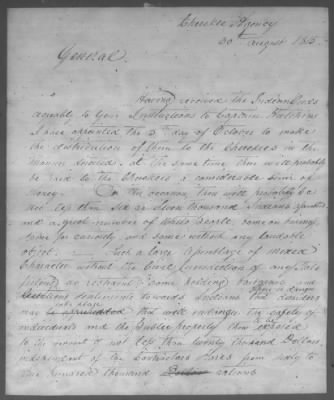 Cherokee Agency
30 August 1815
General.
Having received the Indian Goods
agreeably to Your Instructions to Captain Hutchins
I have appointed the 5th day of October to make
the distribution of them to the Cherokees in the
manner directed, at the same time there will probably
be paid to the Cherokees a considerable sum of
Money. On the occasion there will probably be
not less than six or seven thousand Indians
and a great number of White People, some on business,
some for curiosity and some without any laudable
object. Such a large assemblage of mixed
Character without the Civil Jurisdiction of any State
restraint some holding savage and
sentiments towards Indians that
may take place that will endanger the safety of
individuals and the Public property then exposed
to the amount of not less than twenty thousand Dollars,
independent of the Contractors Stores from sixty to
one hundred thousand rations